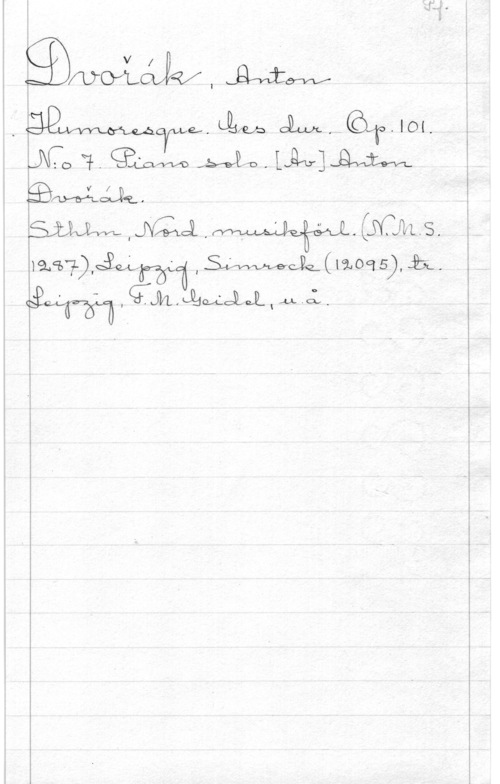 Pf.
Dvořák, Anton
Humoresque. Ges dur. Op. 101.
N:o 7. Piano solo. [Av] Anton
Dvořák.
Sthlm, Nord. musikförl. (N.M.S.
1287), Leipzig, Simrock (12095), tr.
Leipzig, F.M. Geidel, u å.